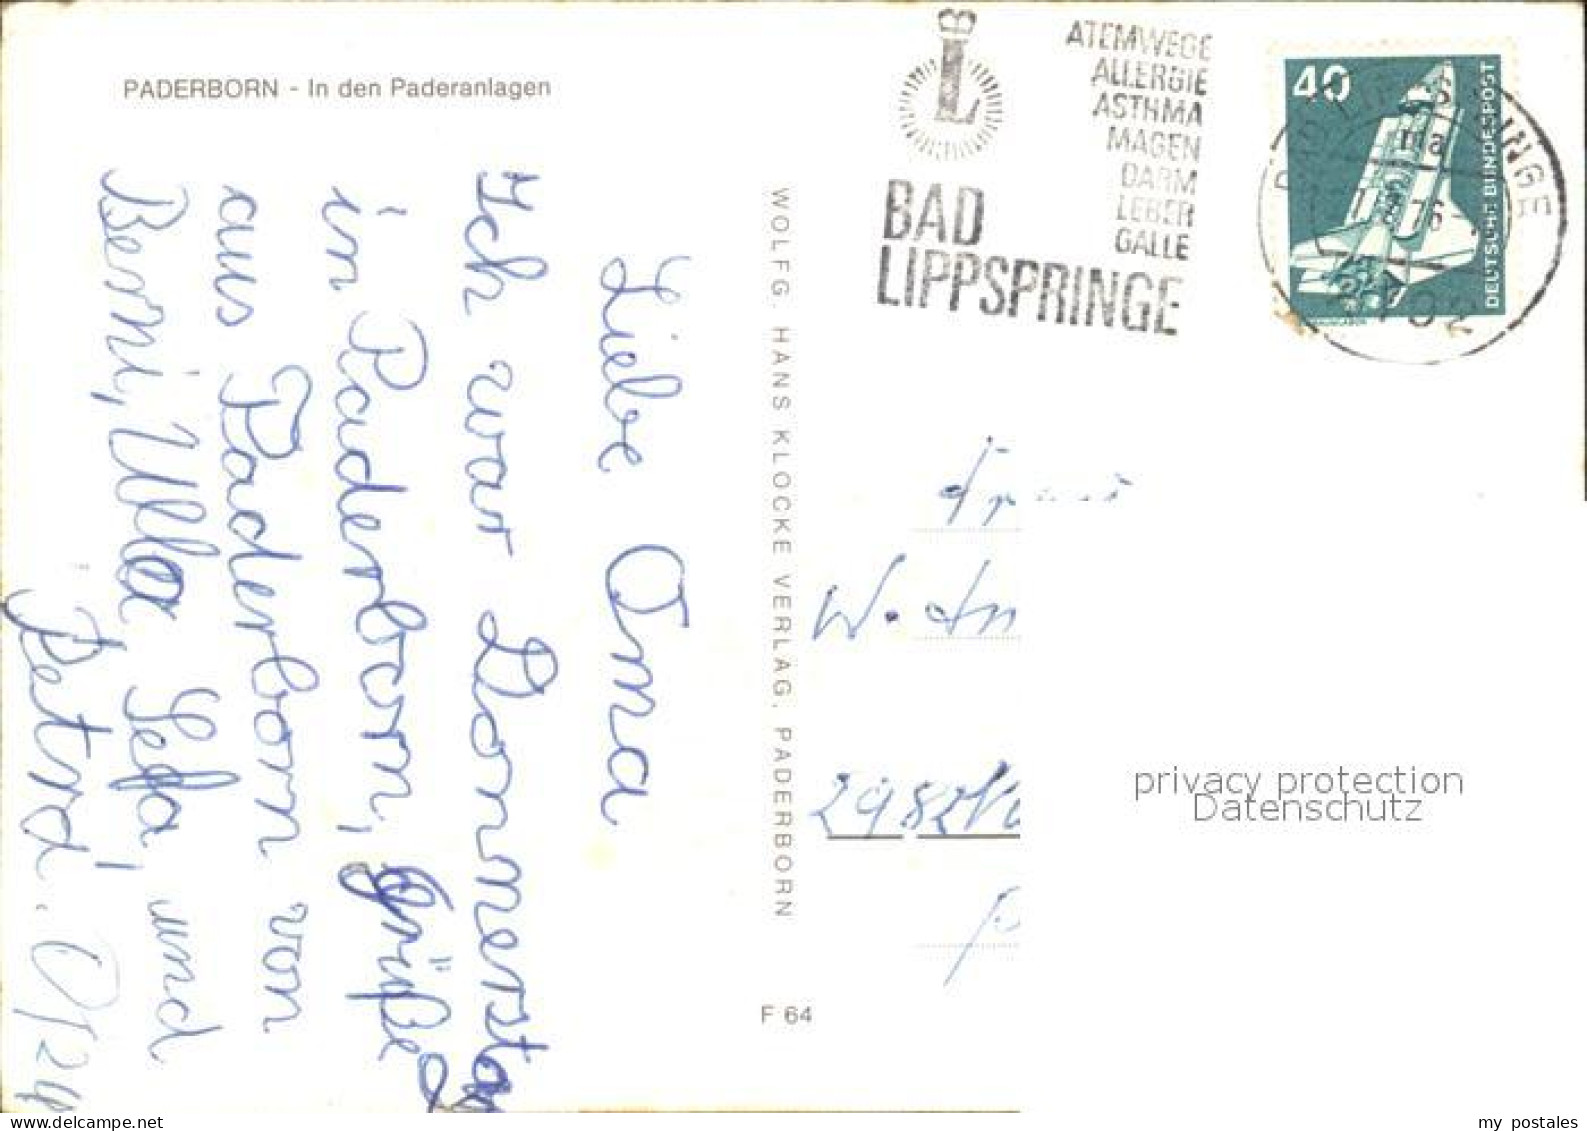 PADERBORN - In den Paderanlagen
Liebe Oma
Ich war Donnerstag
in Paderborn, Grüße
aus Paderborn von
Berni, Ulla, und
Petra.
WOLFG. HANS KLOCKE VERLAG, PADERBORN
F 64
BAD
LIPPSPRINGE
ATEMWEGE
ALLERGIE
ASTHMA
MAGEN
DARM
LEBER
GALLE
40
DEUTSCHE BUNDESPOST
W.
2982
privacy protection
Datenschutz
my postales